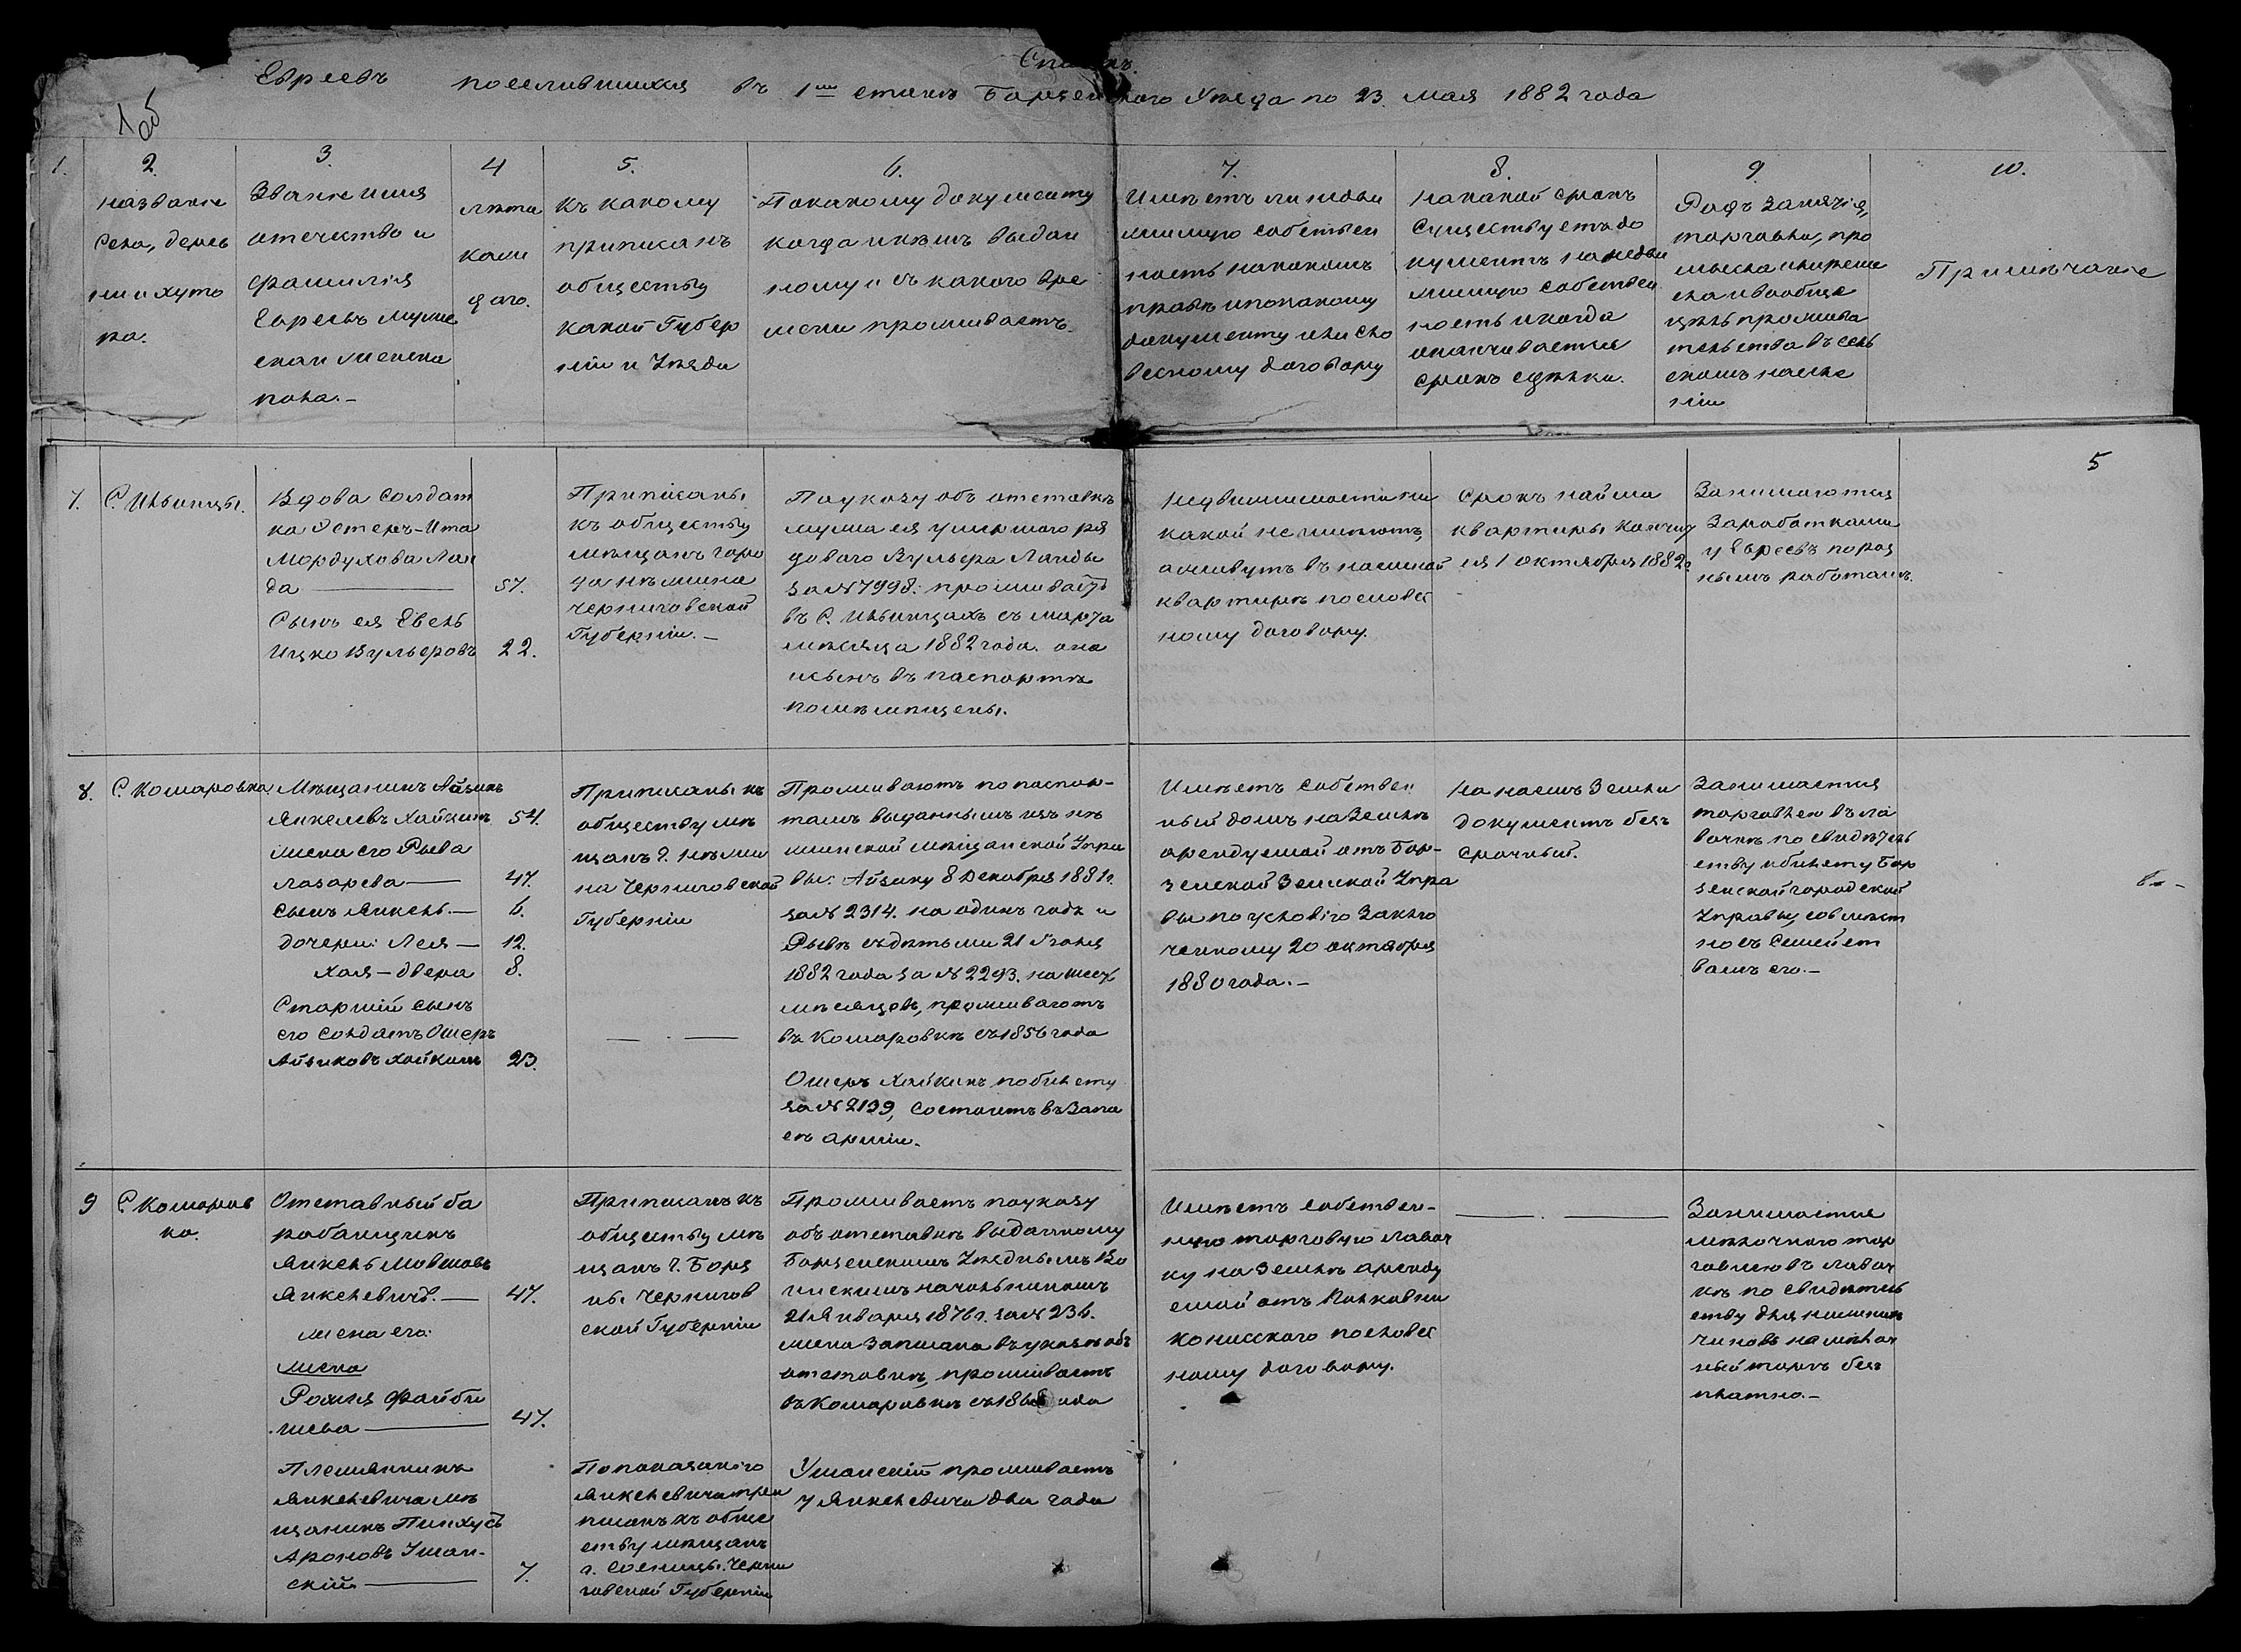 Списокъ.
Евреевъ поселившихся въ 1мъ станѣ Борзенскаго Уѣзда по 23. мая 1882 года
1об
1.
2.
названіе
села, дерев
ни и хуто
ра.
3.
Званіе имя
отечество и
фамилія
Евреевъ муже
ска и женска
пола.–
4
лѣта
кажи
даго.
5.
къ какому
приписанъ
обществу
какой Губер
ніи и Уѣзда
6.
По какому документу
когда и кѣмъ выдан
ному и съ какого вре
мени проживаетъ.
7.
Имѣетъ ли недви
жимую собствен
ность на какомъ
правѣ и по какому
документу или сло
весному договору
8.
на какой срокъ
существуетъ до
кументъ на недви
жимую собствен
ность и когда
оканчивается
срокъ сдѣлки.
9.
Родъ занятія,
торговли, про
мысла и ремес
ла и вообще
цѣль прожива
тельства въ сель
скомъ населе
ніи
10.
Примѣчаніе
5
7.
С. Ильинцы.
Вдова Солдат
ка Эстеръ-Ита
Мордухова Лан
да — 57.
Сынъ ея Евель
Ицко Вульфовъ 22.
Приписаны
къ обществу
мѣщанъ горо
да нѣжина
черниговской
Губерніи.–
По указу объ отставкѣ
мужа ея умершого ря
доваго Вульфа Ланды
за № 7998. проживаетъ
въ С. Ильинцахъ съ марта
мѣсяца 1882 года. она
и сынъ въ паспортѣ
помѣщены.
Недвижимости ни
какой не имѣютъ,
а живутъ въ наемной
квартирѣ по словес
ному договору.
Срокъ найма
квартиры кончит
ся 1 октября 1882 г
Занимаются
Заработками
у Евреевъ по раз
нымъ работамъ.
8.
С. Комаровка
Мѣщанинъ Айзикъ
Янкелевъ Хайкинъ 54.
жена его Рыва
лазарева — 47.
сынъ Янкель.— 6.
дочери: Лея — 12.
Хая-двера 8.
Старшій сынъ
его Солдатъ Ошеръ
Айзиковъ Хайкинъ 23.
Приписаны къ
обществу мѣ
щанъ г. нѣжи
на Черниговской
Губерніи
— . —
Проживаютъ по паспор-
тамъ выданнымъ изъ нѣ
жинской мѣщанской Упра
вы: Айзику 8 Декабря 1881 г.
за № 2314. на одинъ годъ и
Рывѣ съ дѣтьми 21 Іюня
1882 года за № 2293. на шесть
мѣсяцовъ, проживаютъ
въ Комаровкѣ съ 1856 года
Ошеръ Хайкинъ по билету
за № 2139, состоитъ въ Запа
сѣ арміи.
Имѣетъ собствен
ный домъ на Землѣ
арендуемой отъ Бор-
зенской Земской Упра
вы по условію Заклю
ченному 20 октября
1880 года.–
На наемъ Земли
документъ без
срочный.
Занимается
торговлею въ ла
вочкѣ по свидѣтель
ству и билету Бор
зенской городской
Управы, совмѣст
но съ Семейст
вомъ его.–
9
С. Комаров
ка.
Отставный ба
рабанщикъ
Янкель Мовшовъ
Янкелевичъ.— 47.
жена его:
жена
Рохля Файби
шева — 47.
Племянникъ
Янкелевича мѣ
щанинъ Пинхусъ
Ароновъ Уман-
скій — 7.
Приписанъ къ
обществу мѣ
щанъ г. Борз
ны Чернигов
ской Губерніи
По показанію
Янкелевича при
писанъ къ обще
ству мѣщанъ
г. Сосницы Черни
говской Губерніи
Проживаетъ по указу
объ отставкѣ выданному
Борзенскимъ Уѣзднымъ Во
инскимъ начальникомъ
21 Января 1876 г. за № 236.
жена Записана въ указѣ объ
отставкѣ, проживаетъ
въ Комаровкѣ съ года
Уманскій проживаетъ
у Янкелевича два года
Имѣетъ собствен-
ную торговую лавоч
ку на Землѣ аренду
емой отъ
по словес
ному договору.
— . —
Занимается
мѣлочною тор
говлею въ лавоч
кѣ по свидѣтель
ству для нижнихъ
чиновъ на мѣлоч
ный торгъ без
платно.–